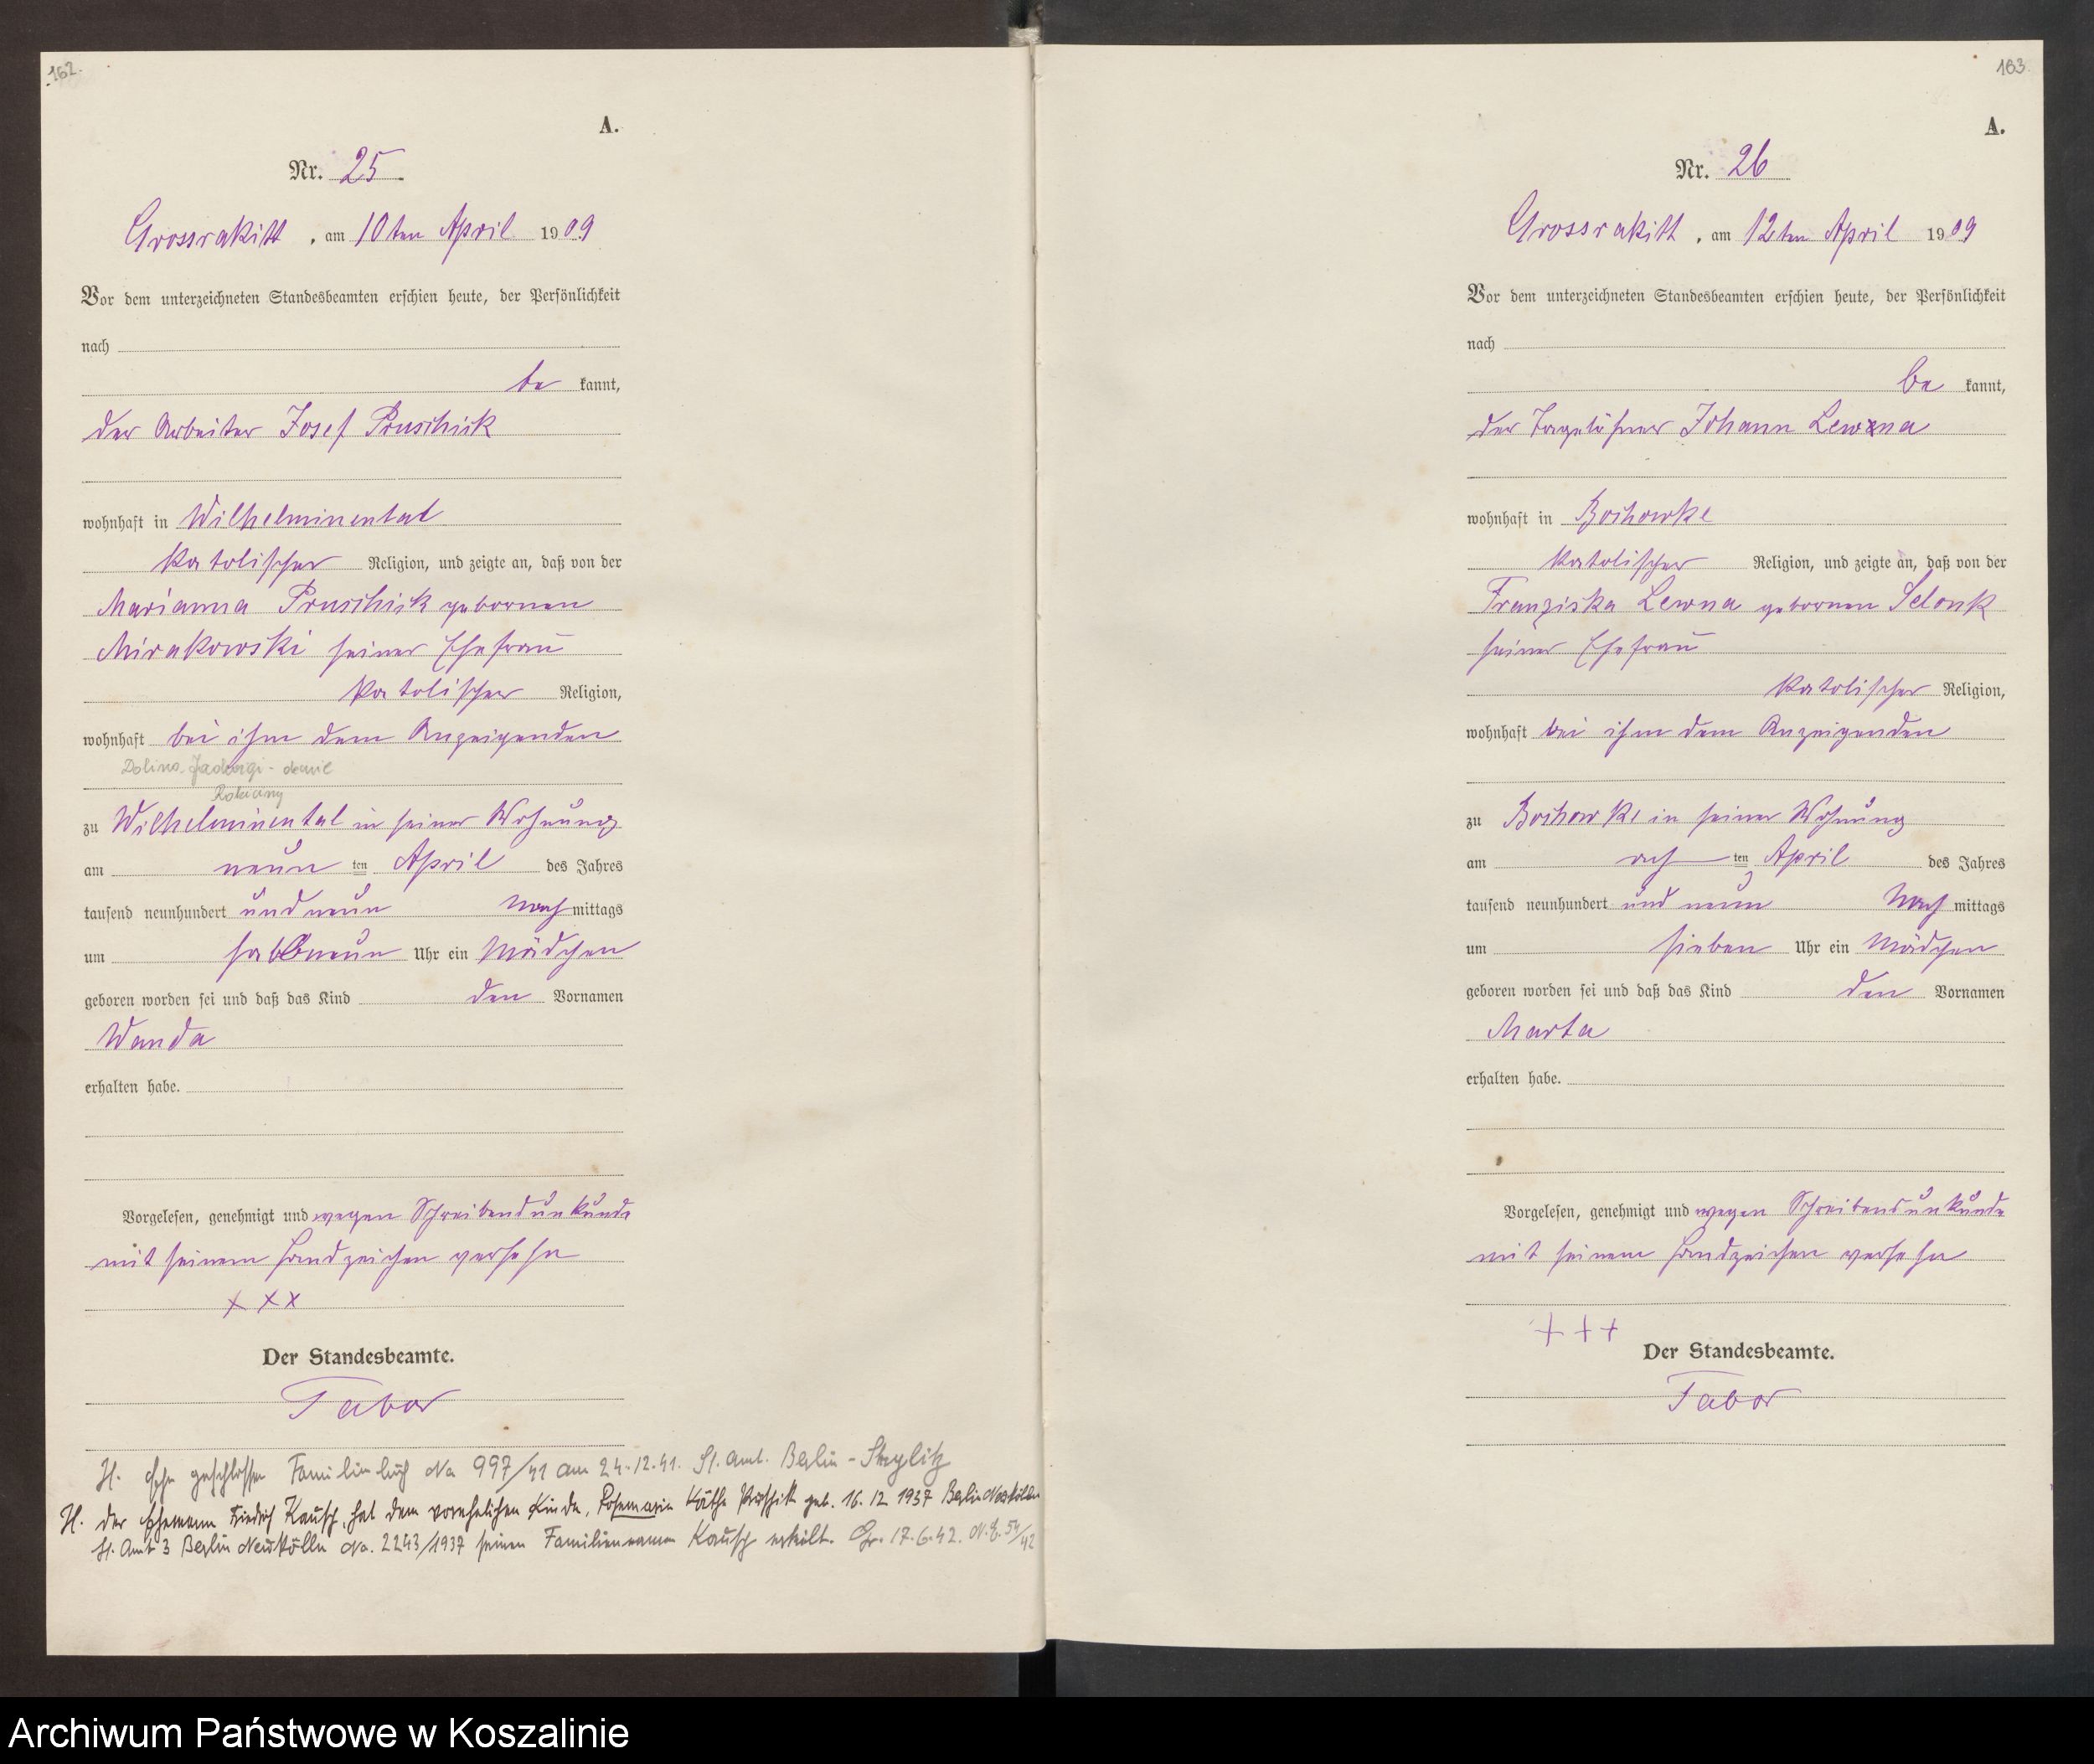 162.
A.
Nr. 25
Grossrakitt, am 10ten April 1909
Vor dem unterzeichneten Standesbeamten erschien heute, der Persönlichkeit
nach
be kannt,
der Arbeiter Josef Pruschick
wohnhaft in Wilhelminental
katolischer Religion, und zeigte an, daß von der
Marianna Pruschick gebornen
Mirakowski seiner Ehefrau
katolischer Religion,
wohnhaft bei ihm dem Anzeigenden
Dolina
zu Wilhelminental in seiner Wohnung
am neun ten April des Jahres
tausend neunhundert und neun Nach mittags
um halbneun Uhr ein Mädchen
geboren worden sei und daß das Kind den Vornamen
Wanda
erhalten habe.
Vorgelesen, genehmigt und wegen Schreibendunkunde
mit seinem Handzeichen versehn
x x x
Der Standesbeamte.
Tabor
H. Ehe geschlossen Familienbuch No 997/41 am 24.12.41. St. Amt. Berlin-Steglitz
H. der Ehemann Friedrich Kausch, hat dem vorehelichen Kinde, Rosemarie Käthe geb. 16.12 1937 Berlin Neukölln
St. Amt 3 Berlin Neukölln No. 2243/1937 seinen Familiennamen Kausch erteilt. Gr. 17.6.42. 54/42
163
A.
Nr. 26
Grossrakitt, am 12ten April 1909
Vor dem unterzeichneten Standesbeamten erschien heute, der Persönlichkeit
nach
be kannt,
der Tagelöhner Johann Lewna
wohnhaft in Bochowke
katolischer Religion, und zeigte an, daß von der
Franziska Lewna gebornen Selonk
seiner Ehefrau
katolischer Religion,
wohnhaft bei ihm dem Anzeigenden
zu Bochowke in seiner Wohnung
am ach ten April des Jahres
tausend neunhundert und neun Nach mittags
um sieben Uhr ein Mädchen
geboren worden sei und daß das Kind den Vornamen
Marta
erhalten habe.
Vorgelesen, genehmigt und wegen Schreibensunkunde
mit seinem Handzeichen versehn
+ + +
Der Standesbeamte.
Tabor
Archiwum Państwowe w Koszalinie